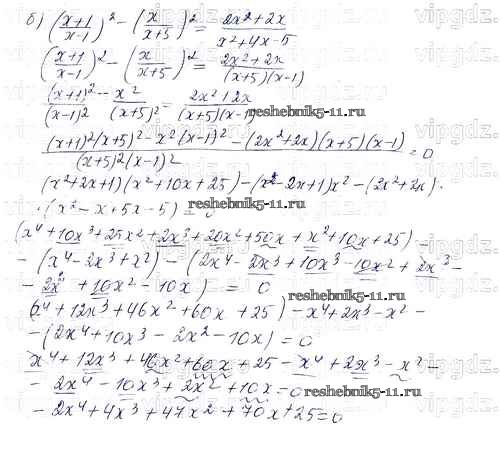 б) ((x+1)/(x-1))² - (x/(x+5))² = (2x²+2x)/(x²+4x-5)
((x+1)/(x-1))² - (x/(x+5))² = (2x²+2x)/((x+5)(x-1))
(x+1)²/(x-1)² - x²/(x+5)² = (2x²+2x)/((x+5)(x-1)
reshebnik5-11.ru
((x+1)²(x+5)² - x²(x-1)² - (2x²+2x)(x+5)(x-1))/((x+5)²(x-1)²) = 0
(x²+2x+1)(x²+10x+25) - (x²-2x+1)x² - (2x²+2x)·
·(x²-x+5x-5) = 0
reshebnik5-11.ru
(x⁴+10x³+25x²+2x³+20x²+50x+x²+10x+25) -
- (x⁴-2x³+x²) - (2x⁴-2x³+10x³-10x²+2x³-
- 2x²+10x²-10x) = 0
reshebnik5-11.ru
(x⁴+12x³+46x²+60x+25) - x⁴+2x³-x² -
- (2x⁴+10x³-2x²-10x) = 0
x⁴+12x³+46x²+60x+25-x⁴+2x³-x²-
- 2x⁴-10x³+2x²+10x=0
reshebnik5-11.ru
- 2x⁴+4x³+47x²+70x+25=0
vipgdz.ru